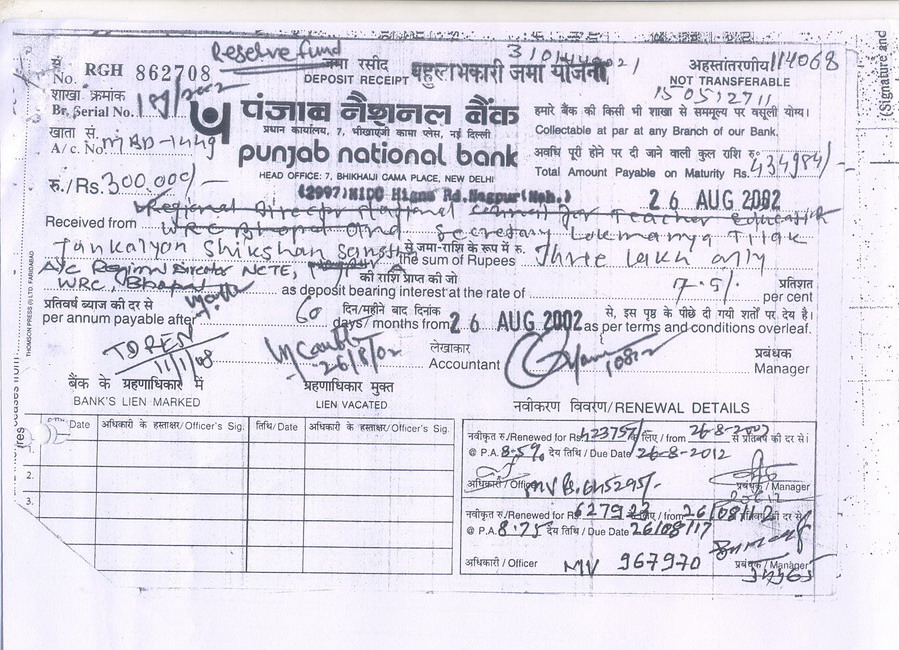 Reserve fund
सं.
No. RGH 862708
जमा रसीद
DEPOSIT RECEIPT
बहुलाभकारी जमा योजना
अहस्तांतरणीय 114068
NOT TRANSFERABLE
शाखा क्रमांक
Br. Serial No. 189/2002
पंजाब नैशनल बैंक
प्रधान कार्यालय, 7, भीखाएजी कामा प्लेस, नई दिल्ली
हमारे बैंक की किसी भी शाखा से सममूल्य पर वसूली योग्य।
Collectable at par at any Branch of our Bank.
खाता सं.
A/c. No. MBD-1449
punjab national bank
HEAD OFFICE: 7, BHIKHAIJI CAMA PLACE, NEW DELHI
अवधि पूरी होने पर दी जाने वाली कुल राशि रु०
Total Amount Payable on Maturity Rs. 434984/-
रु./Rs. 300,000/-
(2997) MIDC Higna Rd. Nagpur (Mah.)
26 AUG 2002
Regional Director National Council for Teacher Education
Received from WRC Bhopal and Secretary Lokmanya Tilak
Jankalyan Shikshan Sanstha से जमा-राशि के रूप में रु.
the sum of Rupees Three lakh only
A/C Region Director NCTE, की राशि प्राप्त की जो
WRC, Bhopal as deposit bearing interest at the rate of 7.5% प्रतिशत
per cent
प्रतिवर्ष ब्याज की दर से
per annum payable after 60 दिन/महीने बाद दिनांक
days/months from 26 AUG 2002 से, इस पृष्ठ के पीछे दी गयी शर्तों पर देय है।
as per terms and conditions overleaf.
TDREN
11/1/08
26/8/02
लेखाकार
Accountant
प्रबंधक
Manager
बैंक के ग्रहणाधिकार में
BANK'S LIEN MARKED
ग्रहणाधिकार मुक्त
LIEN VACATED
नवीकरण विवरण/RENEWAL DETAILS
Date
अधिकारी के हस्ताक्षर/Officer's Sig.
तिथि/Date
अधिकारी के हस्ताक्षर/Officer's Sig.
1.
2.
3.
नवीकृत रु./Renewed for Rs. 423757/- के लिए / from 26-8-2007 से प्रतिवर्ष की दर से।
@ P.A. 8.5% देय तिथि / Due Date 26-8-2012
अधिकारी / Officer MV Rs. 645295/- प्रबंधक / Manager
नवीकृत रु./Renewed for Rs. 627923 के लिए / from 26/08/12 प्रतिवर्ष की दर से।
@ P.A. 8.75 देय तिथि / Due Date 26/08/17
अधिकारी / Officer MV 967970 प्रबंधक / Manager
THOMSON PRESS (I) LTD. FARIDABAD
(Signature and